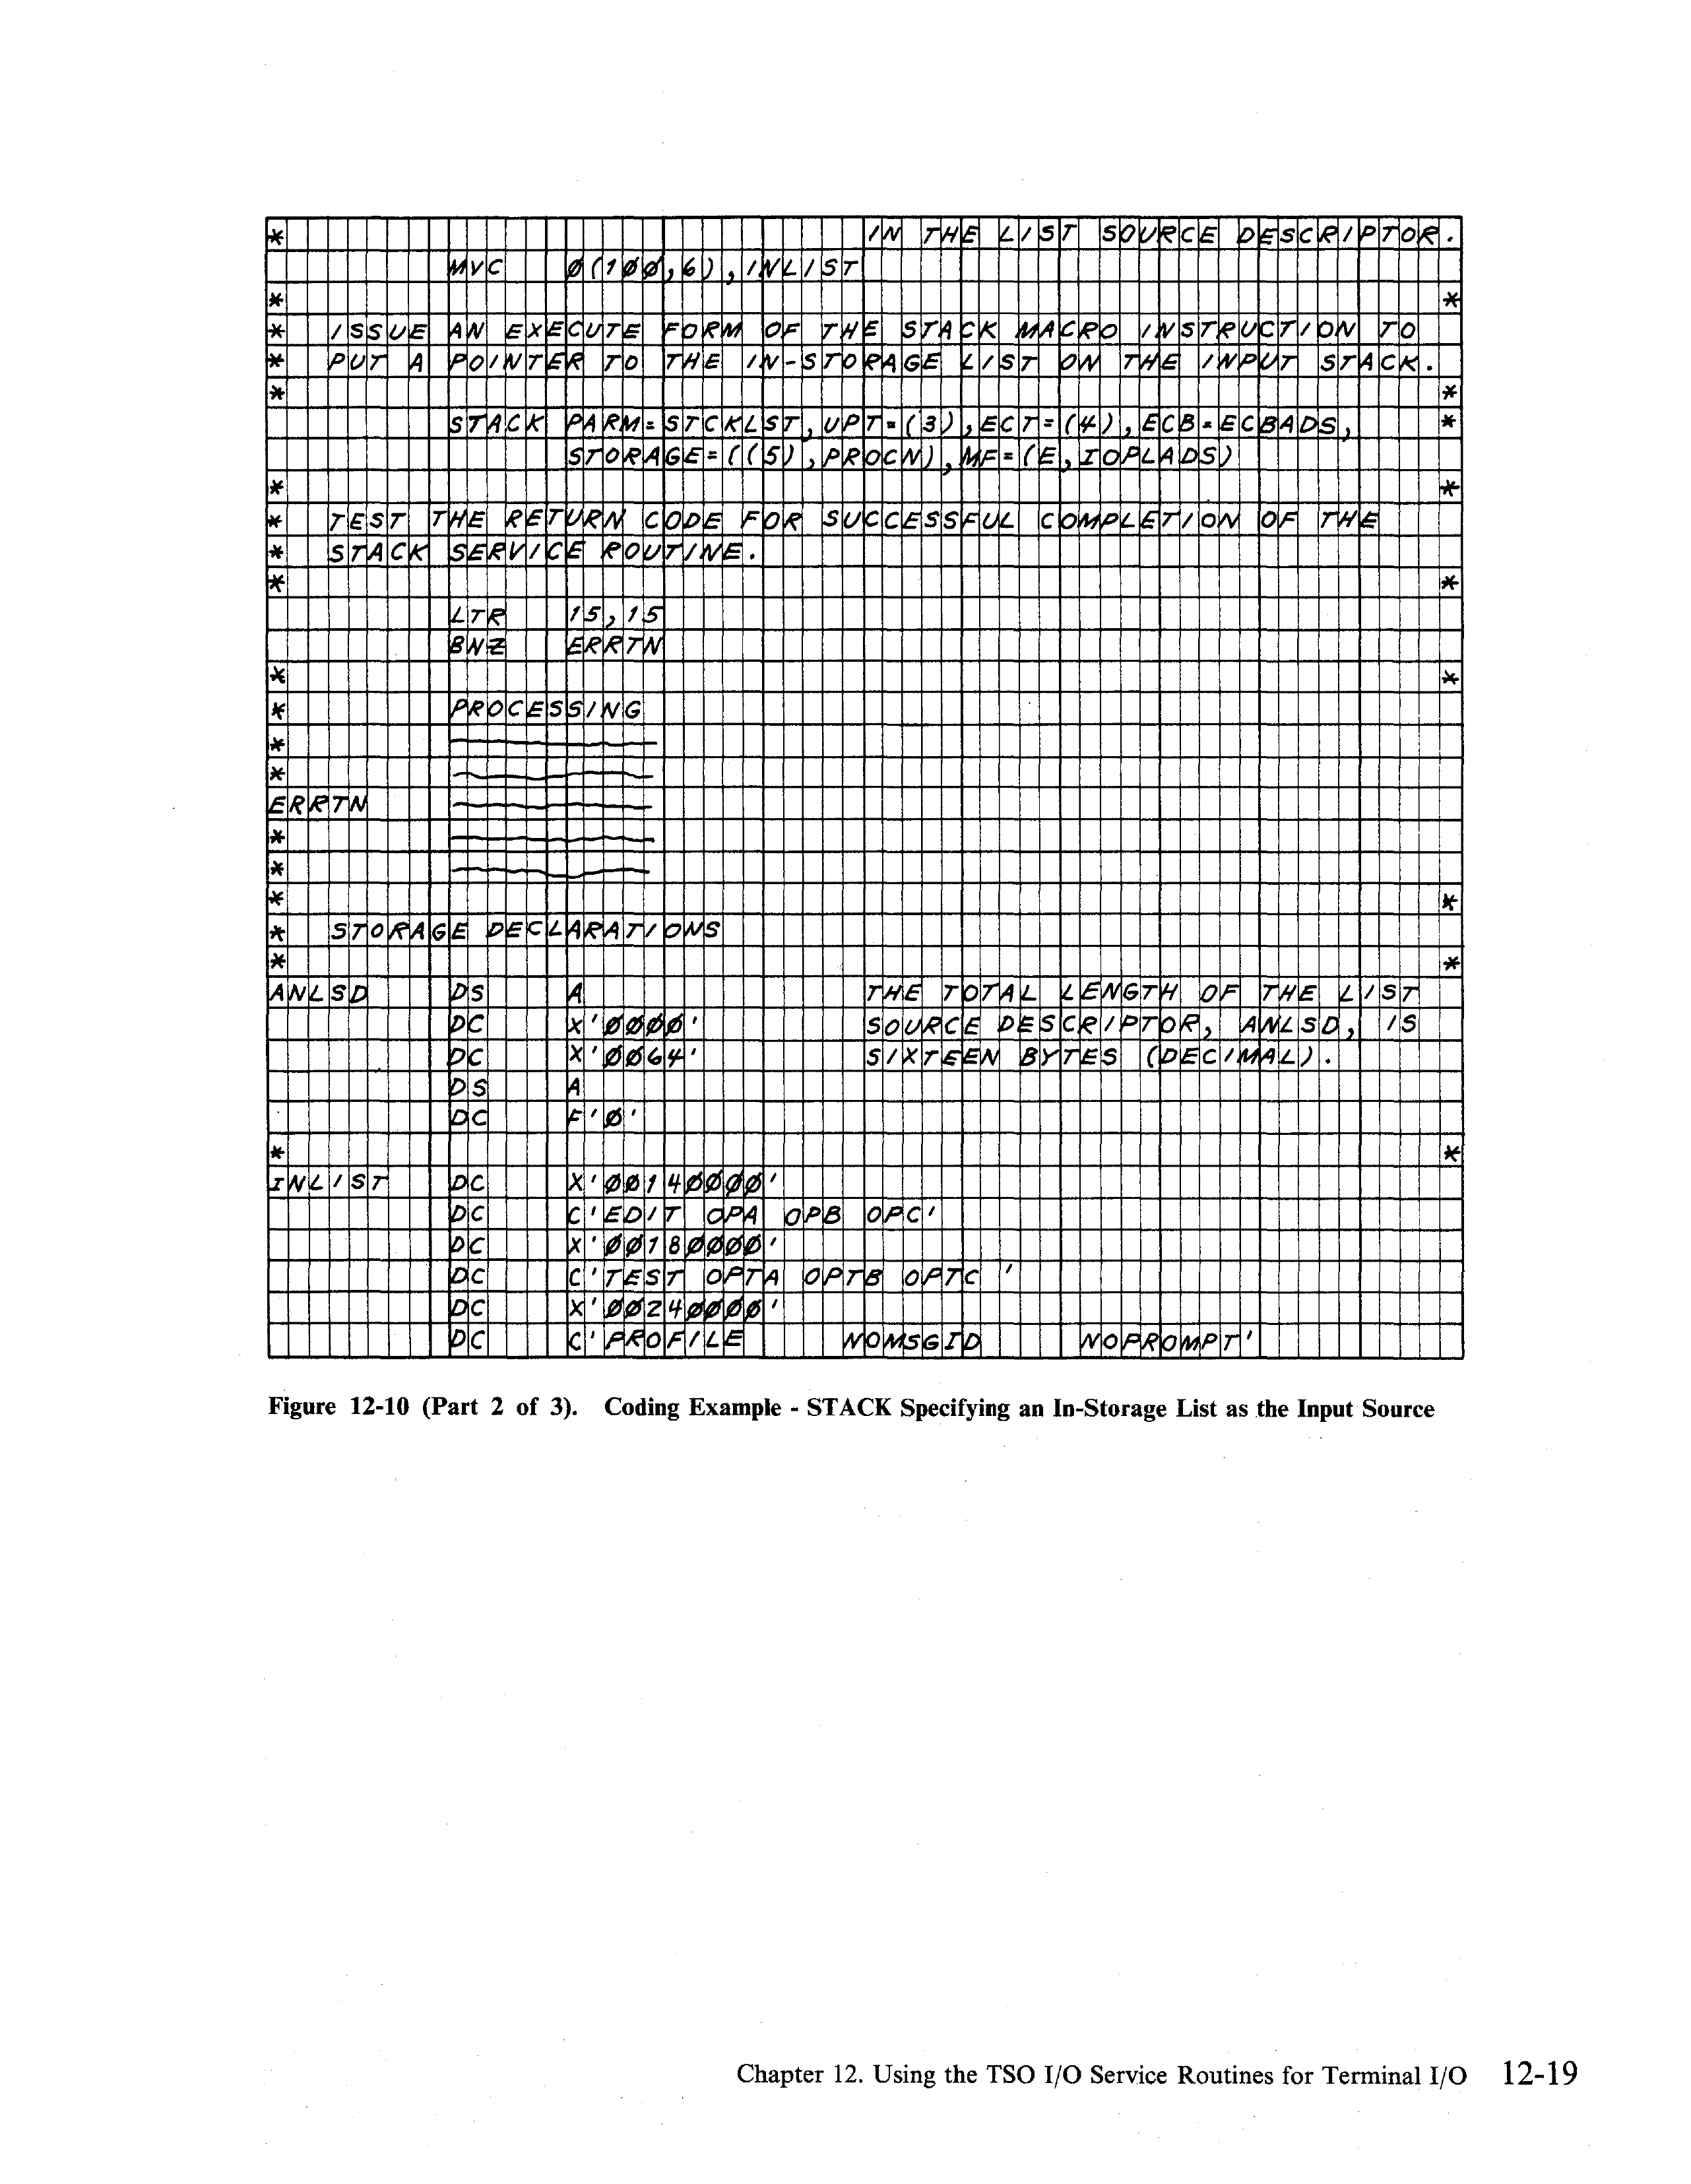 *                             IN THE LIST SOURCE DESCRIPTOR.
         MVC   0(100,6),INLIST
*                                                          *
*  ISSUE AN EXECUTE FORM OF THE STACK MACRO INSTRUCTION TO
*  PUT A POINTER TO THE IN-STORAGE LIST ON THE INPUT STACK.
*                                                          *
         STACK PARM=STCKLST,UPT=(3),ECT=(4),ECB=ECBADS,    *
               STORAGE=((5),PROCN),MF=(E,IOPLADS)
*                                                          *
*  TEST THE RETURN CODE FOR SUCCESSFUL COMPLETION OF THE
*  STACK SERVICE ROUTINE.
*                                                          *
         LTR   15,15
         BNZ   ERRTN
*                                                          *
*        PROCESSING
*
*
ERRTN
*
*
*                                                          *
*  STORAGE DECLARATIONS
*                                                          *
ANLSD    DS    A              THE TOTAL LENGTH OF THE LIST
         DC    X'0000'        SOURCE DESCRIPTOR, ANLSD, IS
         DC    X'0064'        SIXTEEN BYTES (DECIMAL).
         DS    A
         DC    F'0'
*                                                          *
INLIST   DC    X'00140000'
         DC    C'EDIT OPA OPB OPC'
         DC    X'00180000'
         DC    C'TEST OPTA OPTB OPTC '
         DC    X'00240000'
         DC    C'PROFILE     NOMSGID     NOPROMPT'
Figure 12-10 (Part 2 of 3). Coding Example - STACK Specifying an In-Storage List as the Input Source
Chapter 12. Using the TSO I/O Service Routines for Terminal I/O 12-19